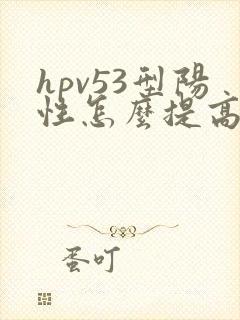 hpv53型陽
性怎麼提高
蛋叮